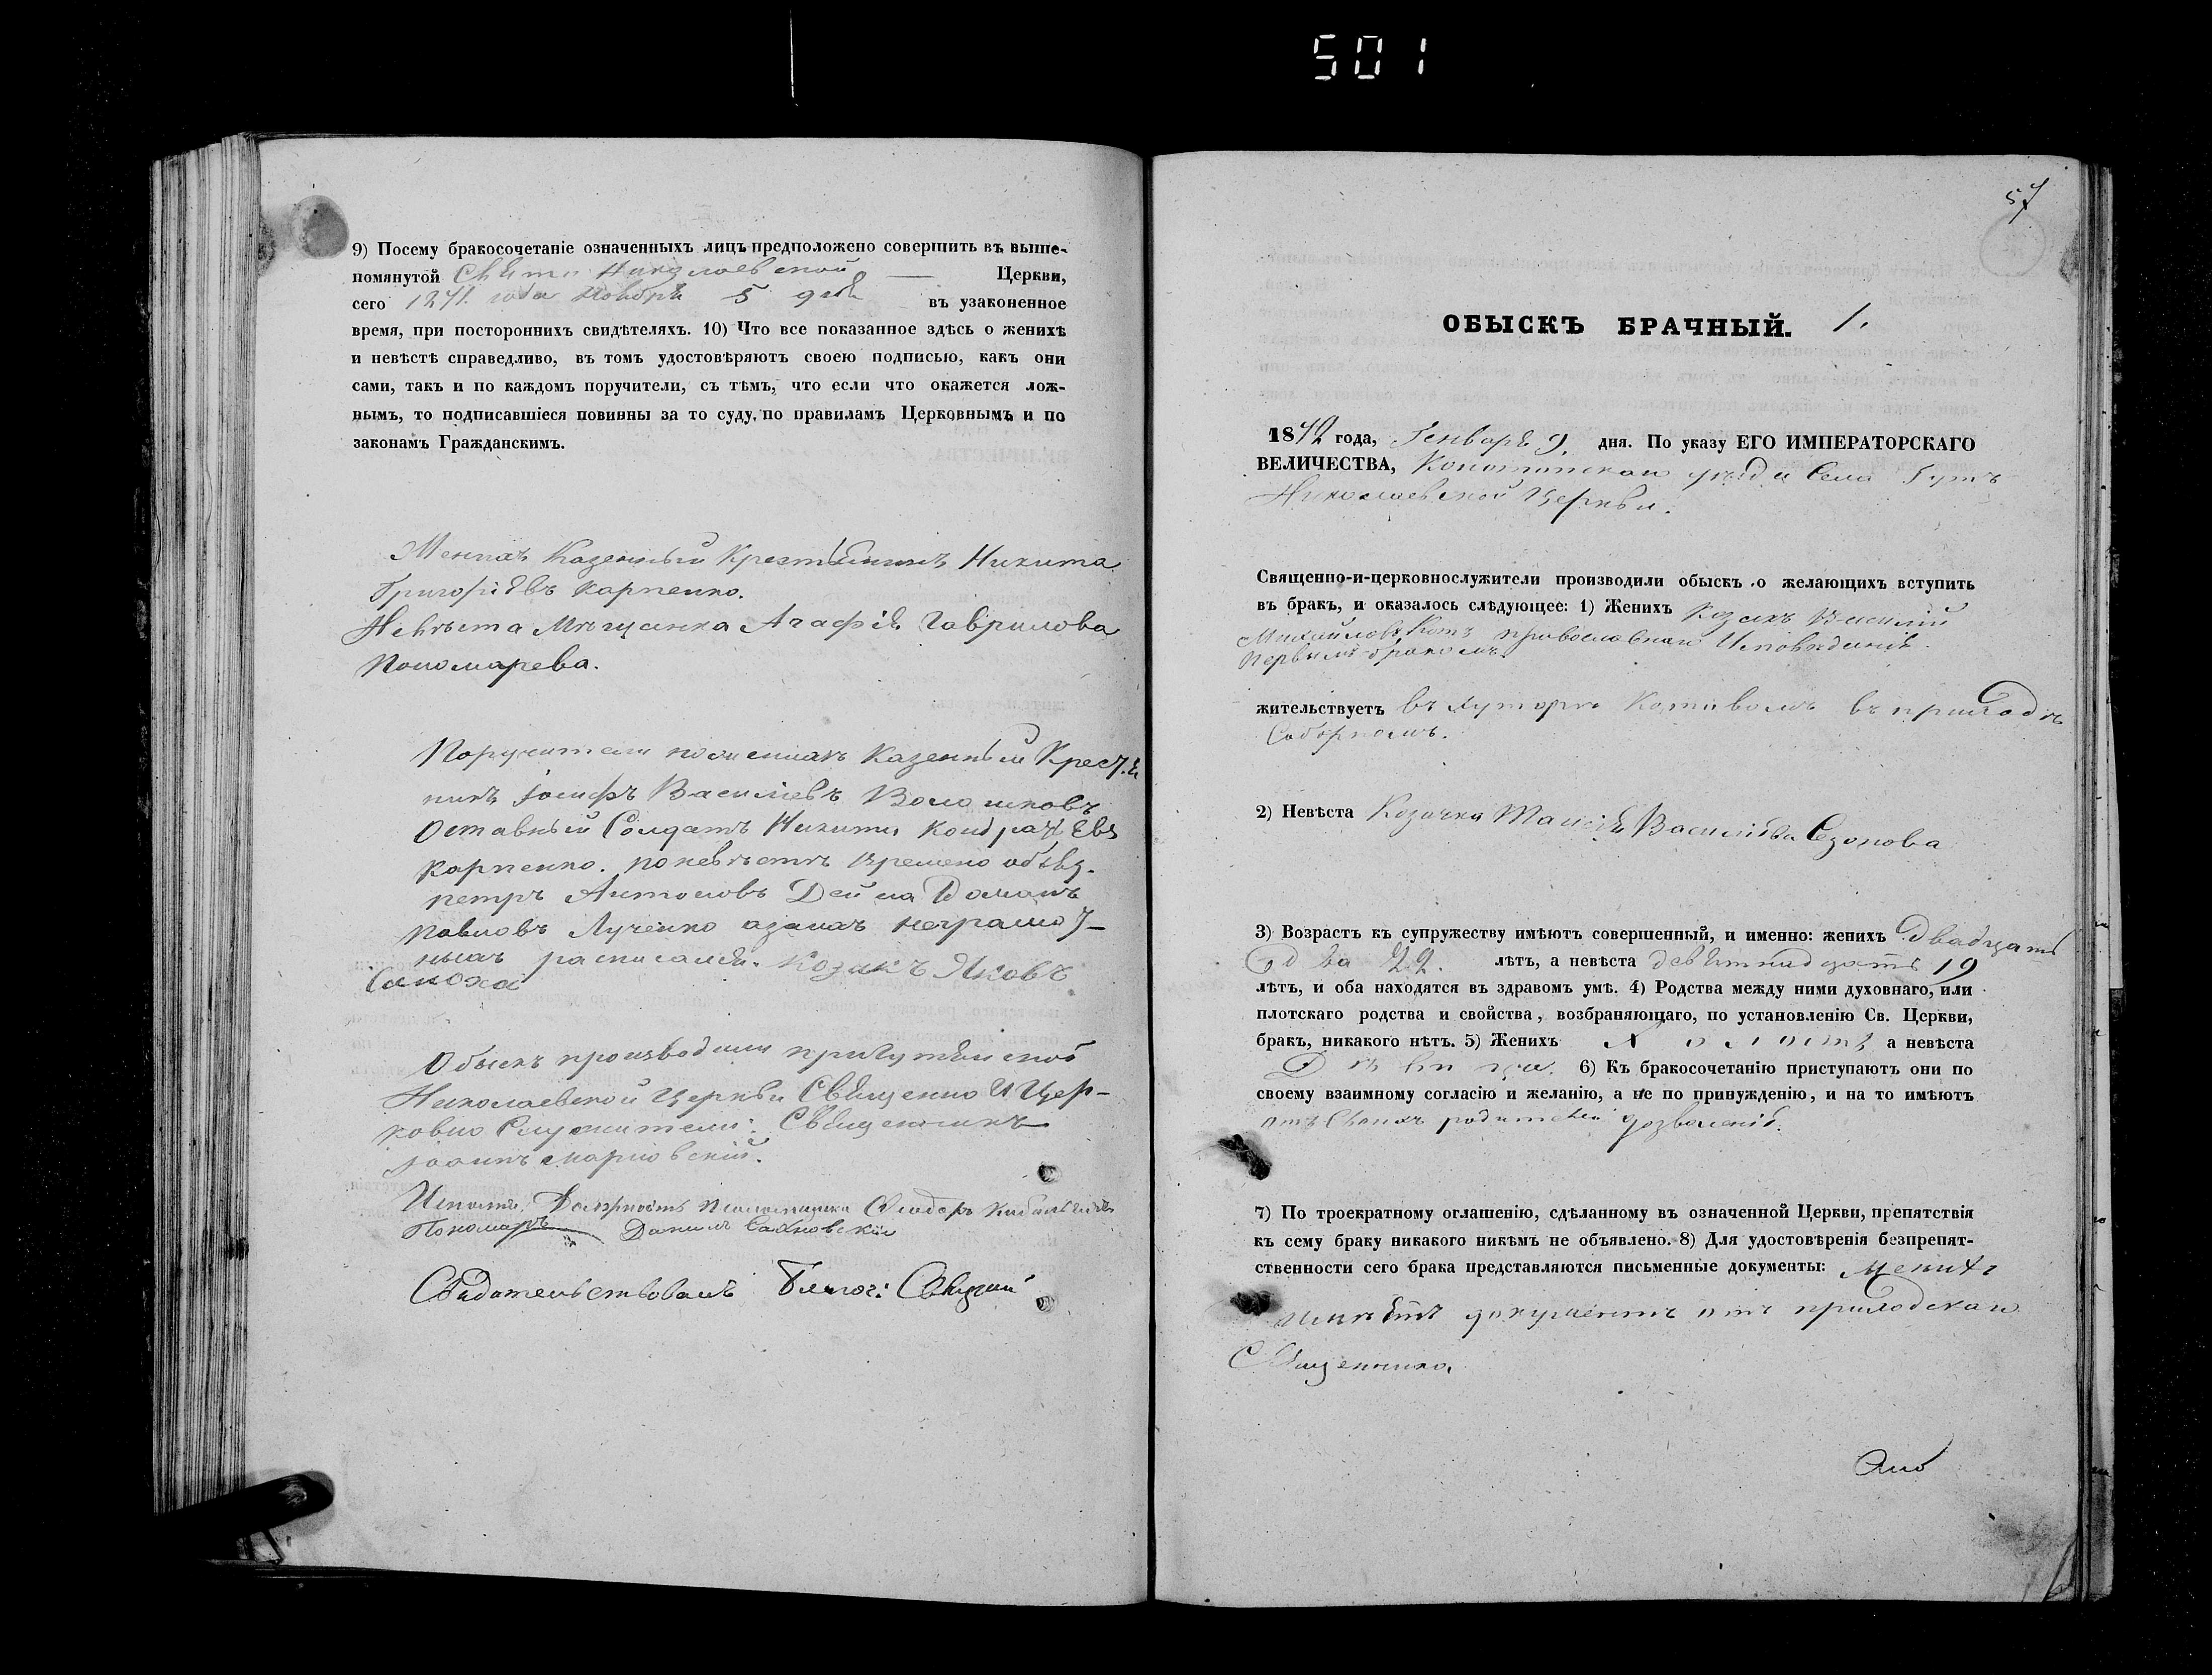 501
9) Посему бракосочетаніе означенныхъ лицъ предположено совершить въ выше-
помянутой Свято Николаевской — Церкви,
сего 1871 года Ноября 5 дня въ узаконенное
время, при постороннихъ свидѣтеляхъ. 10) Что все показанное здѣсь о женихѣ
и невѣстѣ справедливо, въ томъ удостовѣряютъ своею подписью, какъ они
сами, такъ и по каждомъ поручители, съ тѣмъ, что если что окажется лож-
нымъ, то подписавшіеся повинны за то суду, по правиламъ Церковнымъ и по
законамъ Гражданскимъ.
Женихъ Казенный Крестьянинъ Никита
Григоріевъ Карпенко.
Невѣста Мѣщанка Агафія Гаврилова
Пономарева.
Поручители по женихѣ Казенный Крест.я
нинъ Іосифъ Василіевъ Волошковъ
Оставный Солдатъ Никита Кондратіевъ
Карпенко. по невѣстѣ Времено обяз.
петръ Антоновъ Дейна
Павловъ Лученко азанах неграмот-
ныхъ расписался. Козакъ Яковъ
Сапоха
Обыскъ производили
Николаевской Церкви Священно и Цер-
ковно Служители: Священникъ
Іоаннъ Марковскій.
Исполн. Должность Псаломщика
Пономарь Данилъ
Свидетельствовалъ Благоч:
57
ОБЫСКЪ БРАЧНЫЙ. 1.
1872 года, Генваря 9. дня. По указу ЕГО ИМПЕРАТОРСКАГО
ВЕЛИЧЕСТВА, Конотопскаго уѣзда Села Гутъ
Николаевской Церкви.
Священно-и-церковнослужители производили обыскъ о желающихъ вступить
въ бракъ, и оказалось слѣдующее: 1) Женихъ Козакъ Василий
Михайловъ Котъ православнаго Исповѣданія.
Первымъ бракомъ
жительствуетъ въ Хуторѣ Котовомъ въ приходѣ
Соборномъ.
2) Невѣста Козачка Таисія Василіева Сезонова
3) Возрастъ къ супружеству имѣютъ совершенный, и именно: женихъ Двадцать
Два 22. лѣтъ, а невѣста девятнадцать 19
лѣтъ, и оба находятся въ здравомъ умѣ. 4) Родства между ними духовнаго, или
плотскаго родства и свойства, возбраняющаго, по установленію Св. Церкви,
бракъ, никакого нѣтъ. 5) Женихъ Холостъ а невѣста
Дѣвица. 6) Къ бракосочетанію приступаютъ они по
своему взаимному согласію и желанію, а не по принужденію, и на то имѣютъ
отъ своихъ родителей дозволеніе.
7) По троекратному оглашенію, сдѣланному въ означенной Церкви, препятствія
къ сему браку никакого никѣмъ не объявлено. 8) Для удостовѣренія безпрепят-
ственности сего брака представляются письменные документы: Женихъ
имѣетъ документъ отъ приходскаго
Священника.